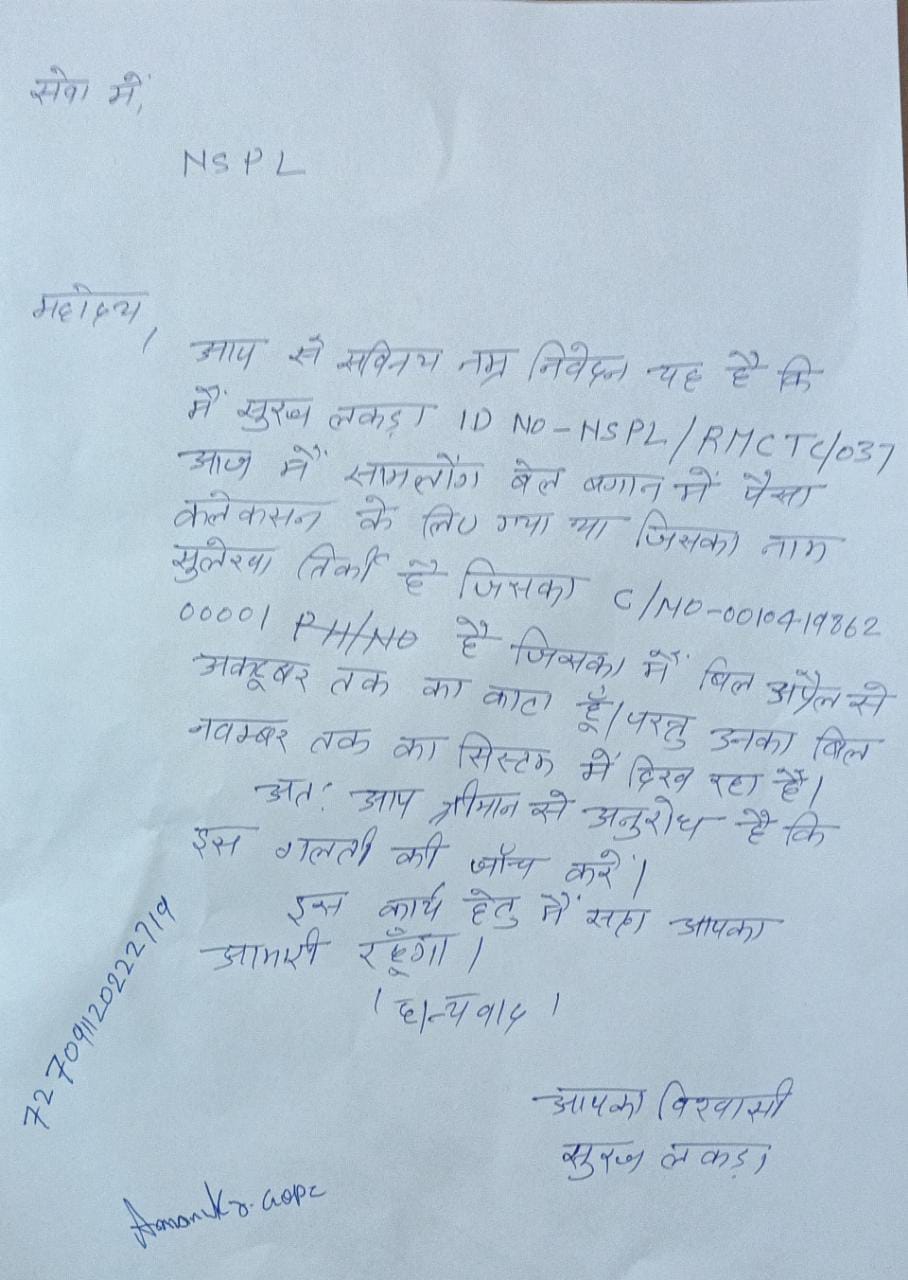 सेवा में,
NSPL
महोदय,
आप से सविनय नम्र निवेदन यह है कि
मैं सुरज लकड़ा ID NO-NSPL/RMCTC/037
आज मैं सामलौंग बेल बगान में पैसा
कलेकसन के लिए गया था जिसका नाम
सुलेखा तिर्की है जिसका C/NO-0010419862
00001 PH/NO है जिसका मैं बिल अप्रैल से
अक्टूबर तक का काटा हूँ। परन्तु उनका बिल
नवम्बर तक का सिस्टम में दिख रहा है।
अतः आप श्रीमान से अनुरोध है कि
इस गलती की जाँच करें।
इस कार्य हेतु मैं सदा आपका
आभारी रहूँगा।
'धन्यवाद'
आपका विश्वासी
सुरज लकड़ा
727091120222719
Aman Kr.